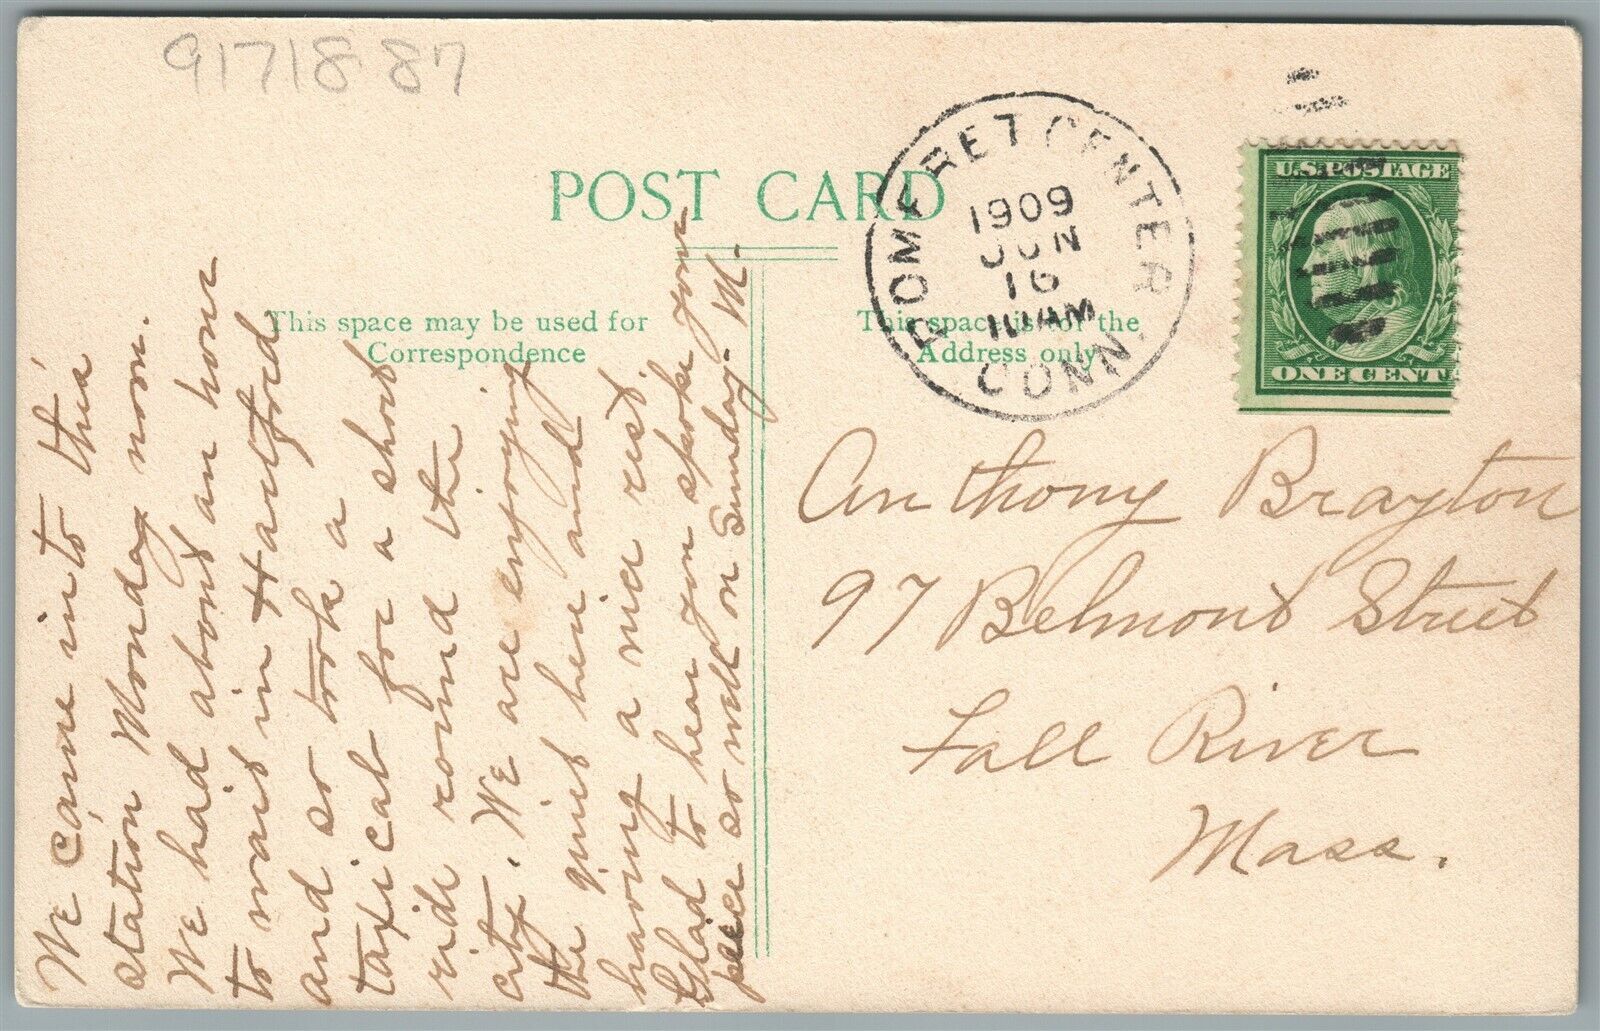 9171887
POST CARD
This space may be used for
Correspondence
This space is for the
Address only
POMFRET CENTER
1909
JUN
16
11 AM
CONN.
U.S. POSTAGE
ONE CENT
We came into this
station Monday noon.
We had about an hour
to wait in Hartford
and so took a
taxicab for a short
ride round the
city. We are enjoying
the quiet here and
having a nice rest.
Glad to hear you spoke your
piece so well on Sunday. M.
Anthony Brayton
97 Belmont Street
Fall River
Mass.